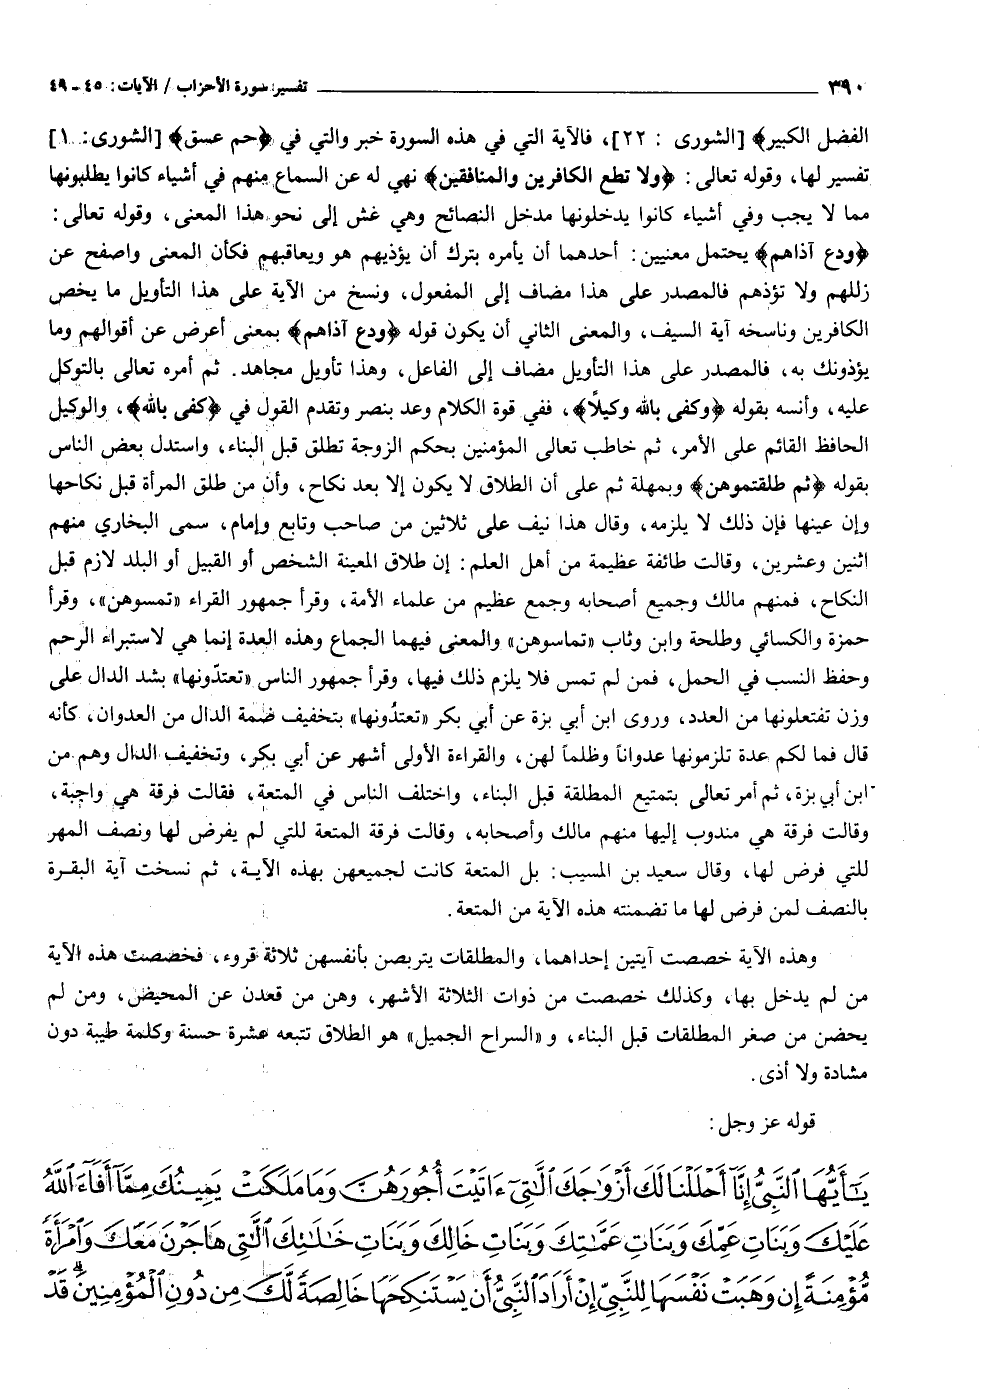 ٣٩٠ تفسير سورة الأحزاب / الآيات: ٤٥ - ٤٩
الفضل الكبير﴾ [الشورى : ٢٢]، فالآية التي في هذه السورة خبر والتي في ﴿حم عسق﴾ [الشورى: ١]
تفسير لها، وقوله تعالى: ﴿ولا تطع الكافرين والمنافقين﴾ نهي له عن السماع منهم في أشياء كانوا يطلبونها
مما لا يجب وفي أشياء كانوا يدخلونها مدخل النصائح وهي غش إلى نحو هذا المعنى، وقوله تعالى:
﴿ودع آذاهم﴾ يحتمل معنيين: أحدهما أن يأمره بترك أن يؤذيهم هو ويعاقبهم فكأن المعنى واصفح عن
زللهم ولا تؤذهم فالمصدر على هذا مضاف إلى المفعول، ونسخ من الآية على هذا التأويل ما يخص
الكافرين وناسخه آية السيف، والمعنى الثاني أن يكون قوله ﴿ودع آذاهم﴾ بمعنى أعرض عن أقوالهم وما
يؤذونك به، فالمصدر على هذا التأويل مضاف إلى الفاعل، وهذا تأويل مجاهد. ثم أمره تعالى بالتوكل
عليه، وأنسه بقوله ﴿وكفى بالله وكيلاً﴾، ففي قوة الكلام وعد بنصر وتقدم القول في ﴿كفى بالله﴾، والوكيل
الحافظ القائم على الأمر، ثم خاطب تعالى المؤمنين بحكم الزوجة تطلق قبل البناء، واستدل بعض الناس
بقوله ﴿ثم طلقتموهن﴾ وبمهلة ثم على أن الطلاق لا يكون إلا بعد نكاح، وأن من طلق المرأة قبل نكاحها
وإن عينها فإن ذلك لا يلزمه، وقال هذا نيف على ثلاثين من صاحب وتابع وإمام، سمى البخاري منهم
اثنين وعشرين، وقالت طائفة عظيمة من أهل العلم: إن طلاق المعينة الشخص أو القبيل أو البلد لازم قبل
النكاح، فمنهم مالك وجميع أصحابه وجمع عظيم من علماء الأمة، وقرأ جمهور القراء «تمسوهن»، وقرأ
حمزة والكسائي وطلحة وابن وثاب «تماسوهن» والمعنى فيهما الجماع وهذه العدة إنما هي لاستبراء الرحم
وحفظ النسب في الحمل، فمن لم تمس فلا يلزم ذلك فيها، وقرأ جمهور الناس «تعتدّونها» بشد الدال على
وزن تفتعلونها من العدد، وروى ابن أبي بزة عن أبي بكر «تعتدُونها» بتخفيف ضمة الدال من العدوان، كأنه
قال فما لكم عدة تلزمونها عدواناً وظلماً لهن، والقراءة الأولى أشهر عن أبي بكر، وتخفيف الدال وهم من
ابن أبي بزة، ثم أمر تعالى بتمتيع المطلقة قبل البناء، واختلف الناس في المتعة، فقالت فرقة هي واجبة،
وقالت فرقة هي مندوب إليها منهم مالك وأصحابه، وقالت فرقة المتعة للتي لم يفرض لها ونصف المهر
للتي فرض لها، وقال سعيد بن المسيب: بل المتعة كانت لجميعهن بهذه الآية، ثم نسخت آية البقرة
بالنصف لمن فرض لها ما تضمنته هذه الآية من المتعة.
وهذه الآية خصصت آيتين إحداهما، والمطلقات يتربصن بأنفسهن ثلاثة قروء، فخصصت هذه الآية
من لم يدخل بها، وكذلك خصصت من ذوات الثلاثة الأشهر، وهن من قعدن عن المحيض، ومن لم
يحضن من صغر المطلقات قبل البناء، و «السراح الجميل» هو الطلاق تتبعه عشرة حسنة وكلمة طيبة دون
مشادة ولا أذى.
قوله عز وجل:
يَٰٓأَيُّهَا ٱلنَّبِىُّ إِنَّآ أَحْلَلْنَا لَكَ أَزْوَٰجَكَ ٱلَّٰتِىٓ ءَاتَيْتَ أُجُورَهُنَّ وَمَا مَلَكَتْ يَمِينُكَ مِمَّآ أَفَآءَ ٱللَّهُ
عَلَيْكَ وَبَنَاتِ عَمِّكَ وَبَنَاتِ عَمَّٰتِكَ وَبَنَاتِ خَالِكَ وَبَنَاتِ خَٰلَٰتِكَ ٱلَّٰتِى هَاجَرْنَ مَعَكَ وَٱمْرَأَةً
مُّؤْمِنَةً إِن وَهَبَتْ نَفْسَهَا لِلنَّبِىِّ إِنْ أَرَادَ ٱلنَّبِىُّ أَن يَسْتَنكِحَهَا خَالِصَةً لَّكَ مِن دُونِ ٱلْمُؤْمِنِينَ ۗ قَدْ